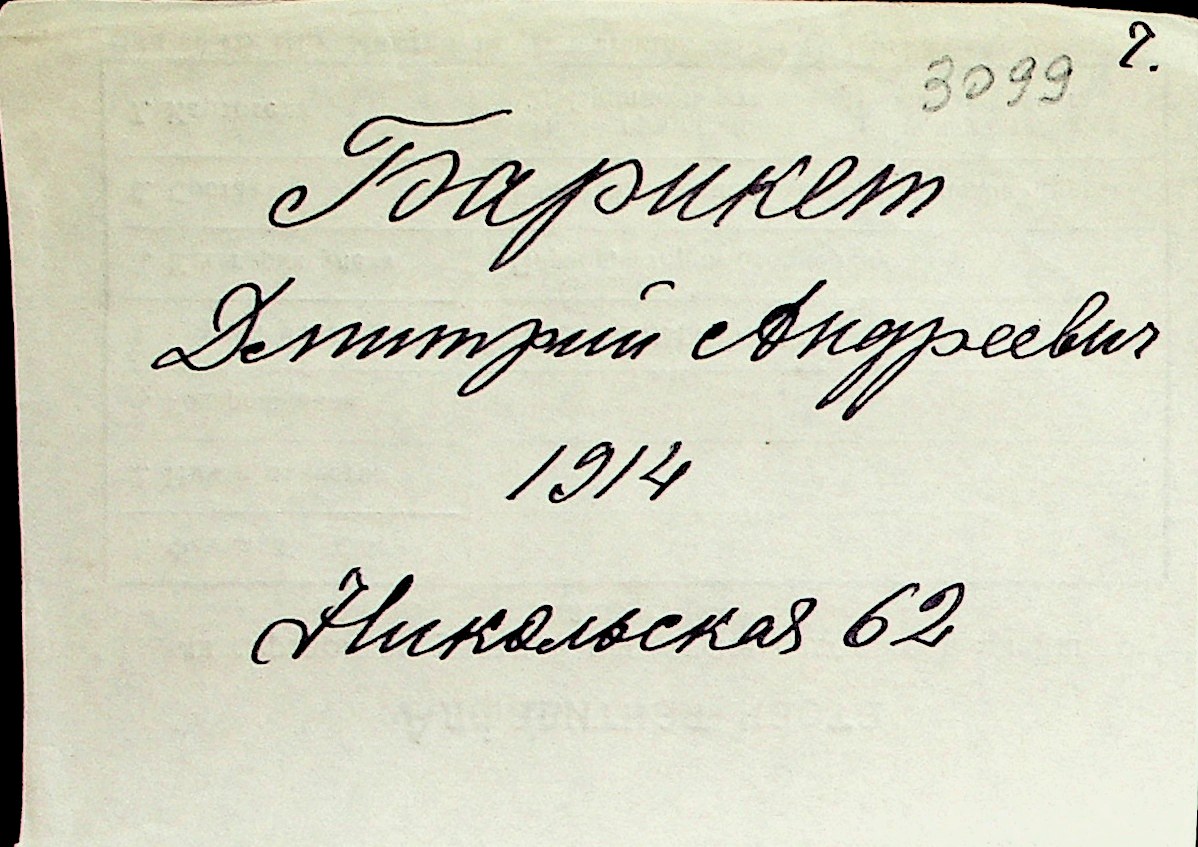 7.
3099
Барикет
Дмитрий Андреевич
1914
Никольская 62